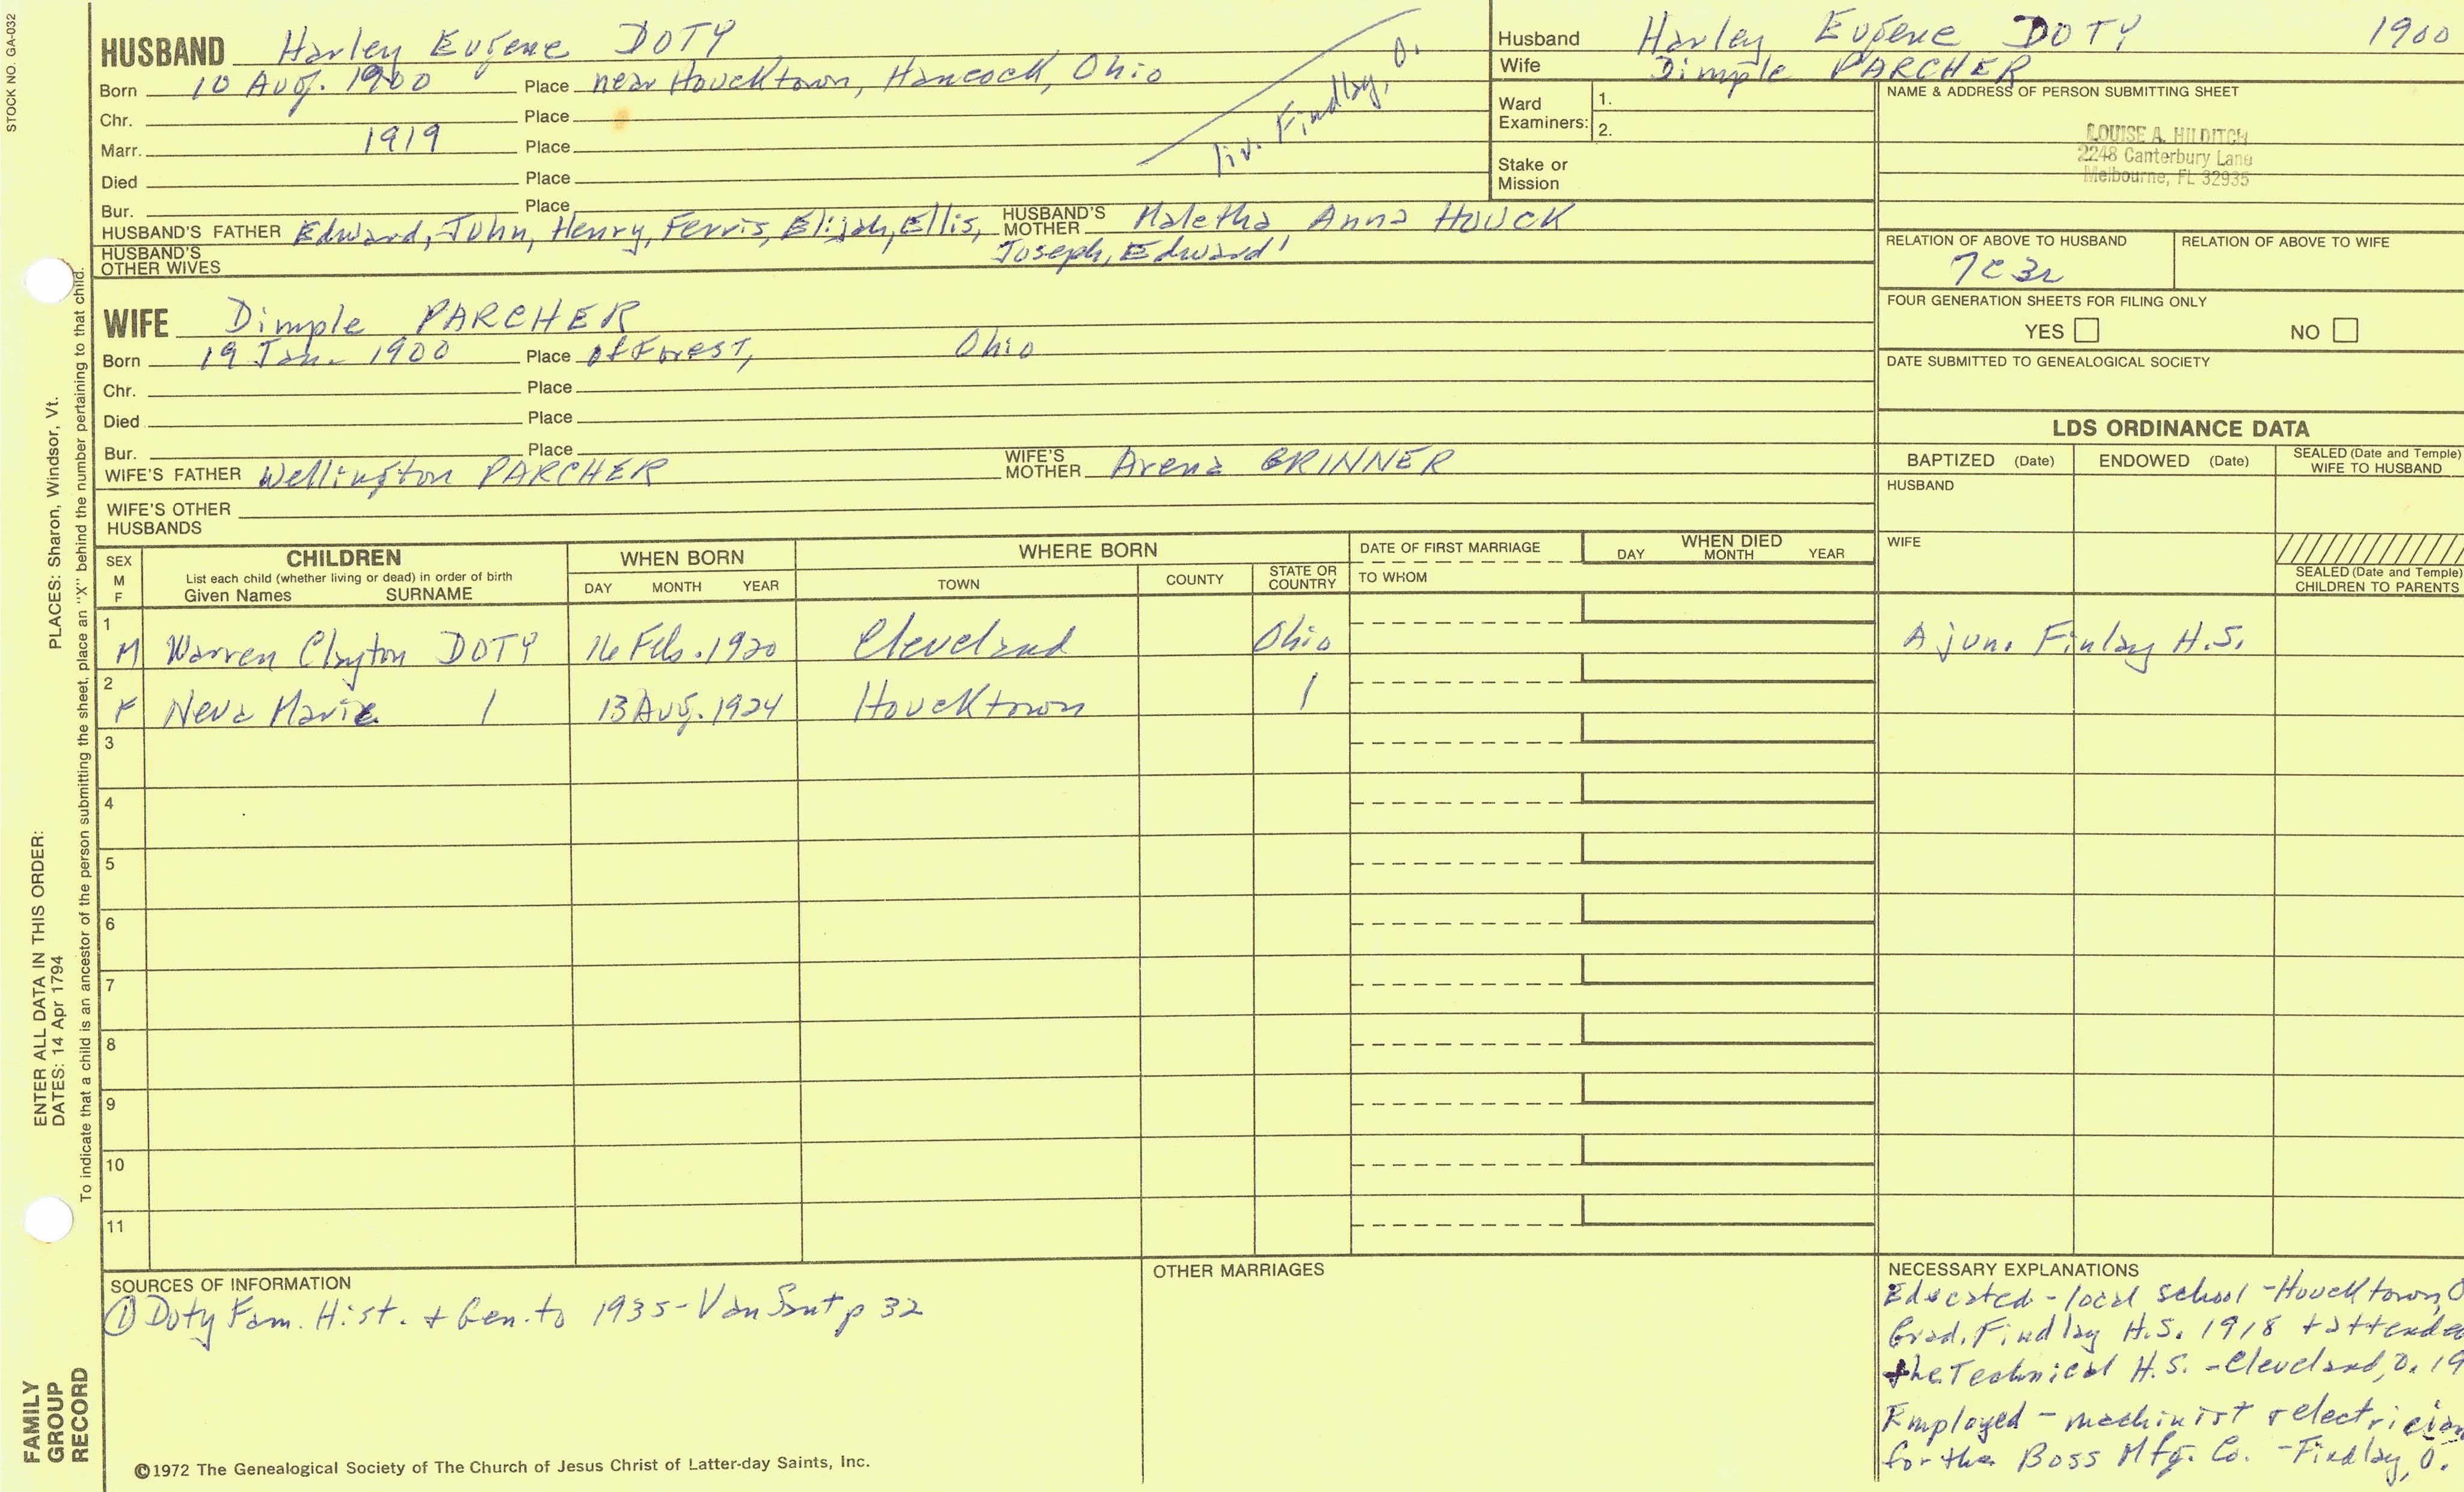 STOCK NO. GA-032
HUSBAND Harley Eugene DOTY
Born 10 Aug. 1900 Place near Houcktown, Hancock, Ohio
Chr. Place
Marr. 1919 Place
Died Place
Bur. Place
liv. Findlay, O.
HUSBAND'S FATHER Edward, John, Henry, Ferris, Elijah, Ellis, Joseph, Edward' HUSBAND'S MOTHER Maletha Anna HOUCK
HUSBAND'S OTHER WIVES
WIFE Dimple PARCHER
Born 19 Jan. 1900 Place of Forest, Ohio
Chr. Place
Died Place
Bur. Place
WIFE'S FATHER Wellington PARCHER WIFE'S MOTHER Arena GRINNER
WIFE'S OTHER HUSBANDS
Husband Harley Eugene DOTY 1900
Wife Dimple PARCHER
Ward Examiners: 1.
2.
Stake or Mission
NAME & ADDRESS OF PERSON SUBMITTING SHEET
LOUISE A. HILDITCH
2248 Canterbury Lane
Melbourne, FL 32935
RELATION OF ABOVE TO HUSBAND RELATION OF ABOVE TO WIFE
7C3r
FOUR GENERATION SHEETS FOR FILING ONLY
YES NO
DATE SUBMITTED TO GENEALOGICAL SOCIETY
LDS ORDINANCE DATA
BAPTIZED (Date) ENDOWED (Date) SEALED (Date and Temple) WIFE TO HUSBAND
HUSBAND
WIFE
SEALED (Date and Temple) CHILDREN TO PARENTS
SEX M F CHILDREN WHEN BORN WHERE BORN DATE OF FIRST MARRIAGE WHEN DIED
List each child (whether living or dead) in order of birth
Given Names SURNAME DAY MONTH YEAR TOWN COUNTY STATE OR COUNTRY TO WHOM DAY MONTH YEAR
1 M Warren Clayton DOTY 16 Feb. 1920 Cleveland Ohio A jun. Finlay H.S.
2 F Neva Marie 1 13 Aug. 1924 Houcktown 1
3
4
5
6
7
8
9
10
11
SOURCES OF INFORMATION
① Doty Fam. Hist. + Gen. to 1935 - Van Sant p 32
OTHER MARRIAGES
NECESSARY EXPLANATIONS
Educated - local school - Houcktown, O
Grad. Findlay H.S. 1918 + attende
the Technical H.S. - Cleveland, O. 19
Employed - machinist & electrician
for the Boss Mfg. Co. - Findlay, O.
©1972 The Genealogical Society of The Church of Jesus Christ of Latter-day Saints, Inc.
ENTER ALL DATA IN THIS ORDER:
DATES: 14 Apr 1794
PLACES: Sharon, Windsor, Vt.
To indicate that a child is an ancestor of the person submitting the sheet, place an "X" behind the number pertaining to that child.
FAMILY
GROUP
RECORD